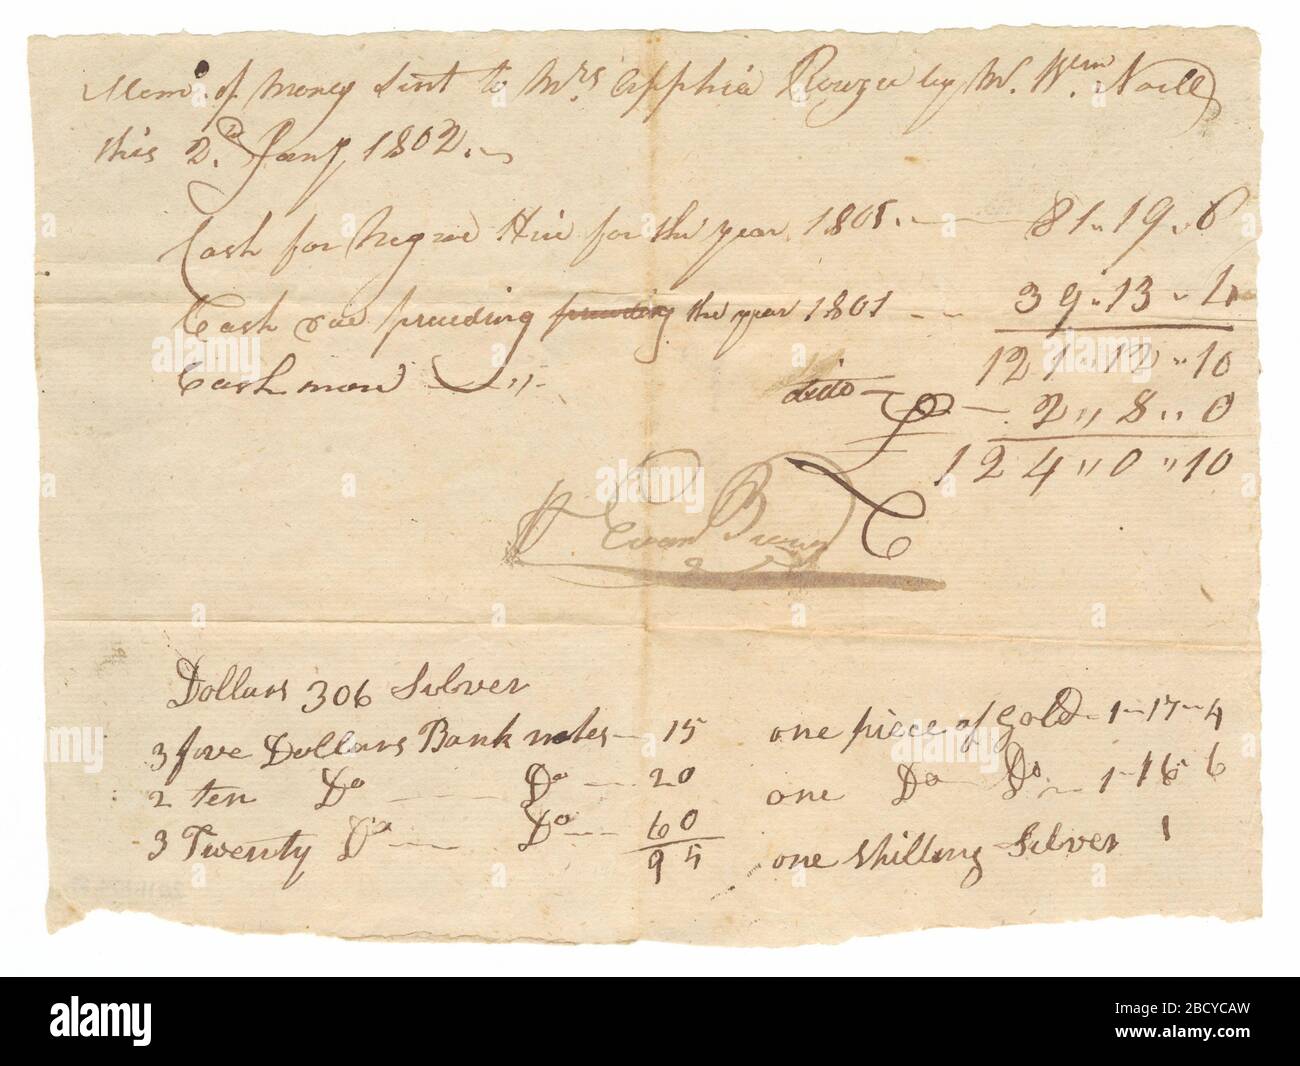 Memo. of Money Sent to Mrs Apphia Rouzee by Mr. Wm. Noell
this 2.d Jany 1802.
Cash for Negroe Hire for the year 1801. 81..19..6
Cash rec preceeding preceeding the year 1801 39..13..4
121..12..10
Cash more dido 2,,8,,0
124,,0,,10
Ewen Brown
Dollars 306 Silver
3 five Dollars Bank notes 15
2 ten Do Do 20
3 Twenty Do Do 60
95
one piece of Gold 1-17-4
one Do Do. 1-16-6
one shilling Silver 1
alamy
Image ID: 2BCYCAW
www.alamy.com